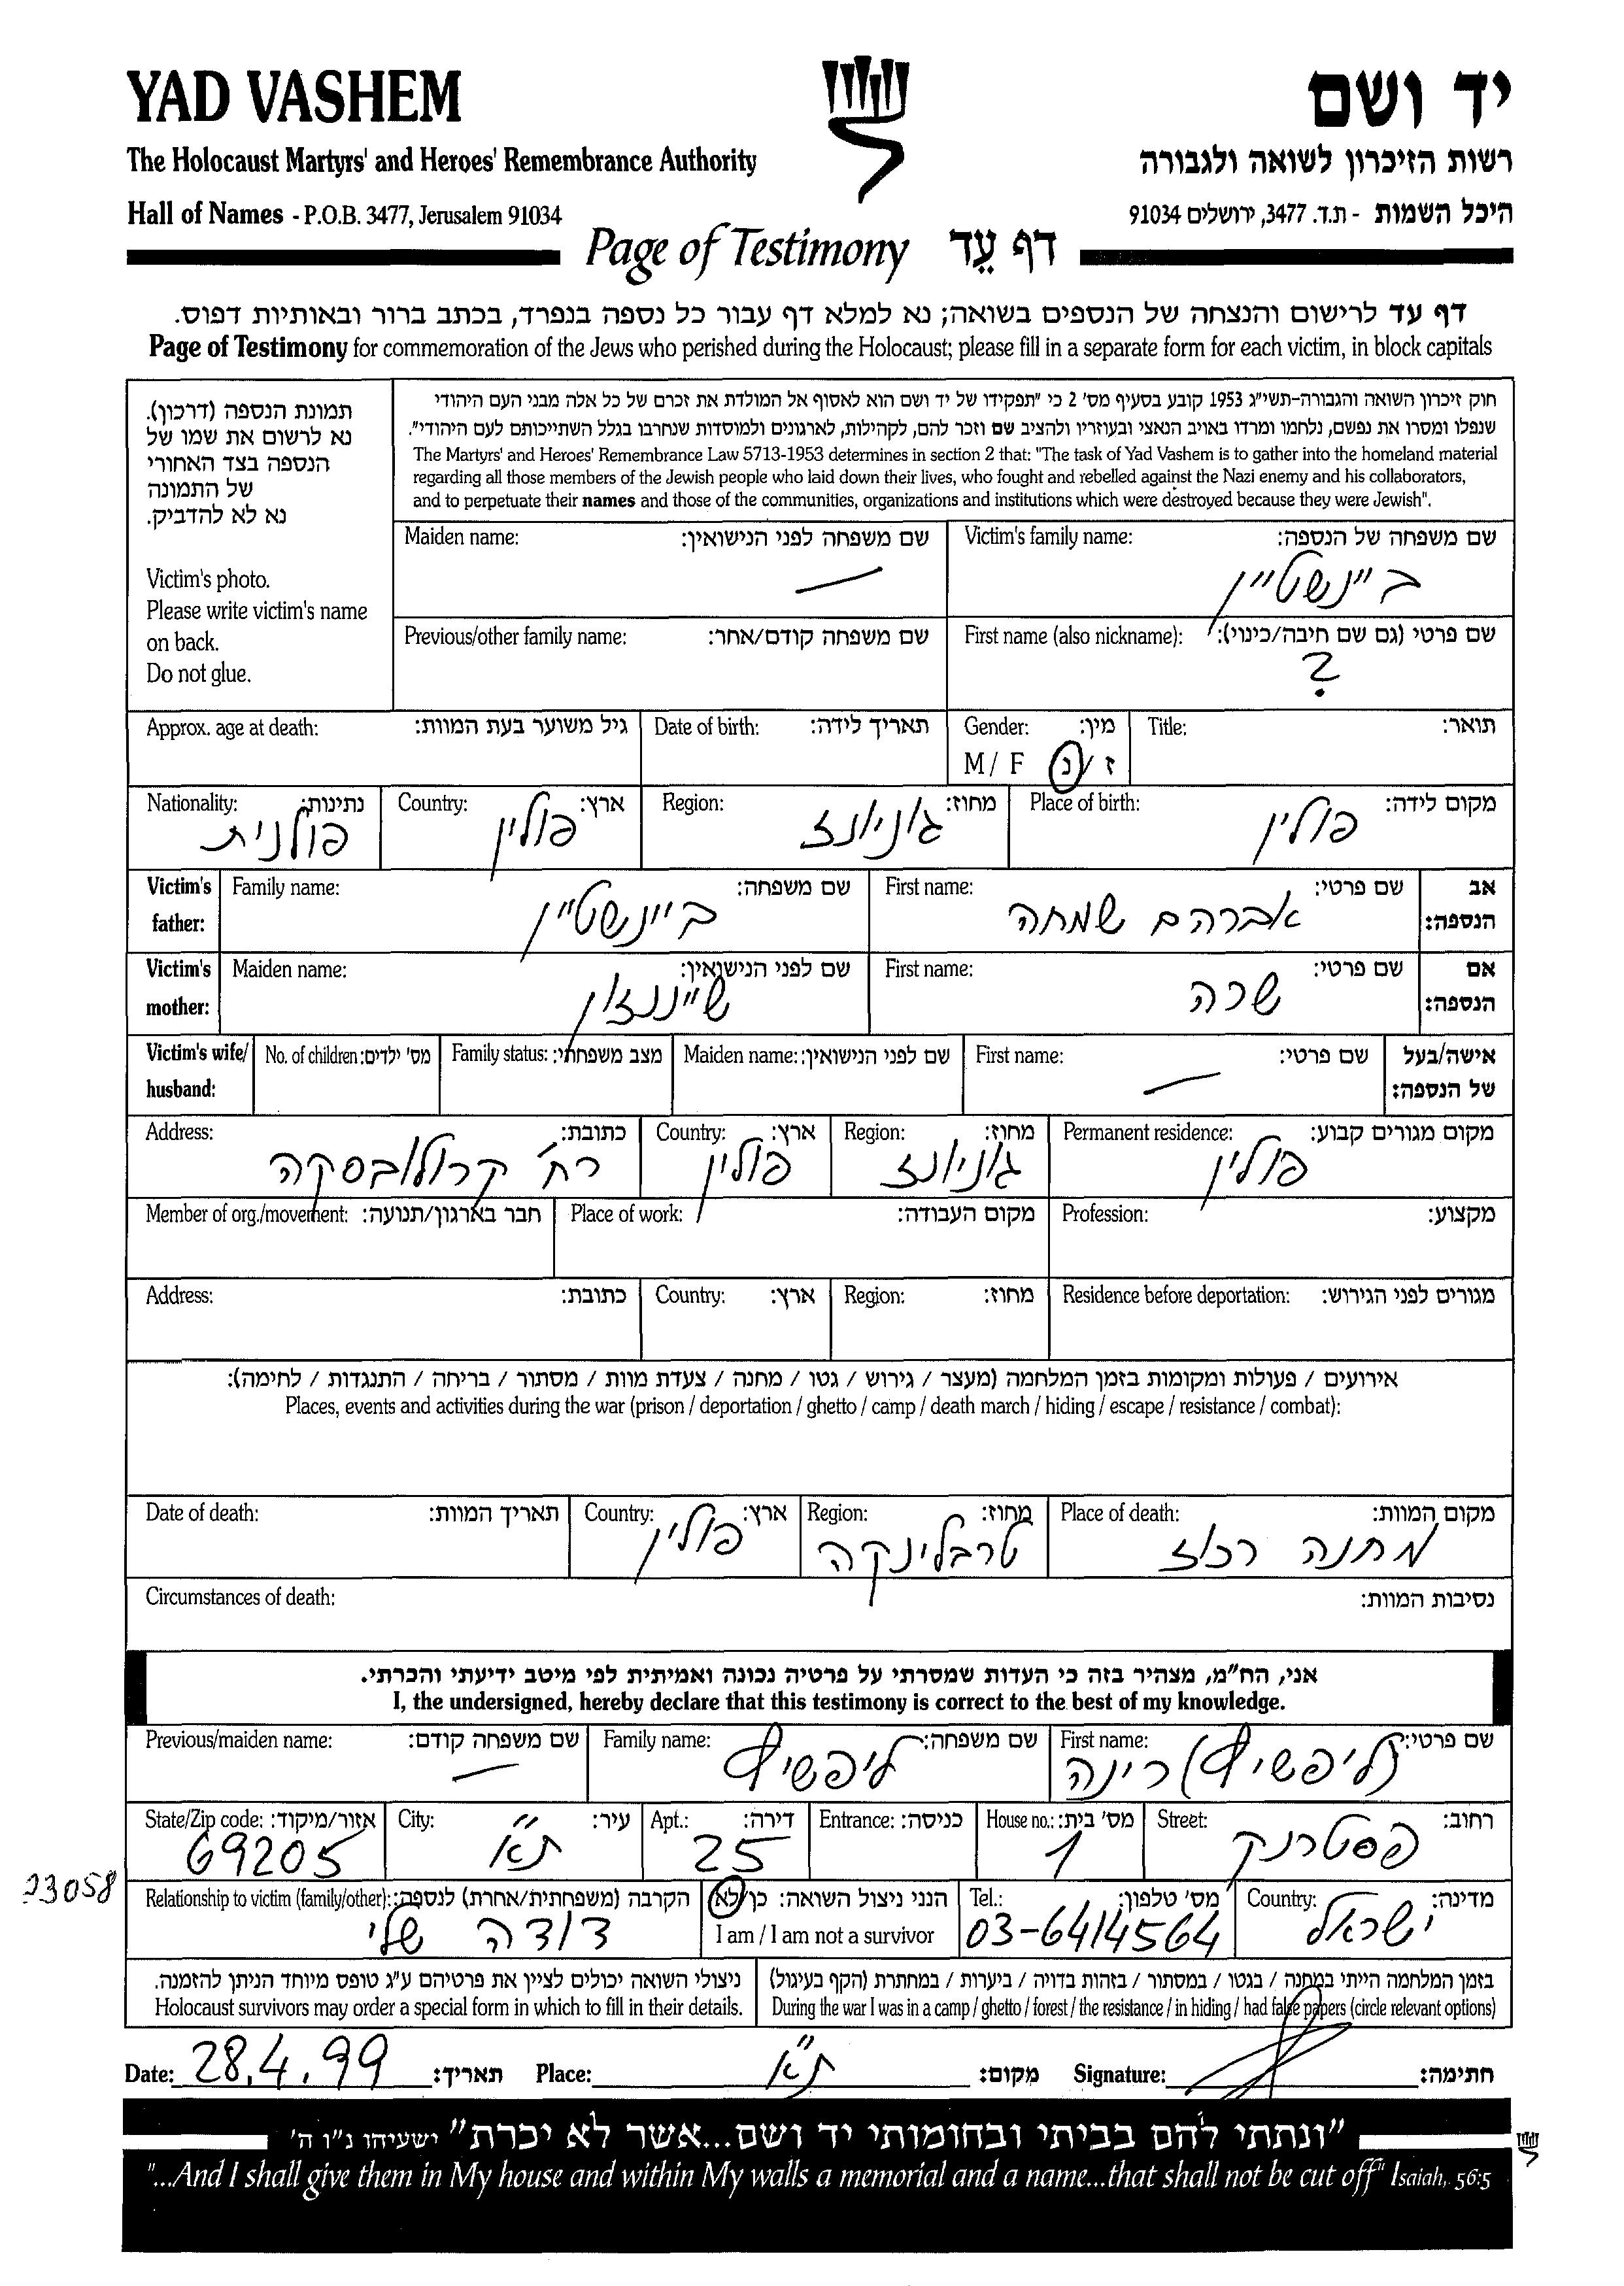 YAD VASHEM
יד ושם
The Holocaust Martyrs' and Heroes' Remembrance Authority
רשות הזיכרון לשואה ולגבורה
Hall of Names - P.O.B. 3477, Jerusalem 91034
היכל השמות - ת.ד. 3477, ירושלים 91034
Page of Testimony דף עֵד
דף עד לרישום והנצחה של הנספים בשואה; נא למלא דף עבור כל נספה בנפרד, בכתב ברור ובאותיות דפוס.
Page of Testimony for commemoration of the Jews who perished during the Holocaust; please fill in a separate form for each victim, in block capitals
תמונת הנספה (דרכון).
נא לרשום את שמו של
הנספה בצד האחורי
של התמונה
נא לא להדביק.
Victim's photo.
Please write victim's name
on back.
Do not glue.
חוק זיכרון השואה והגבורה-תשי"ג 1953 קובע בסעיף מס' 2 כי "תפקידו של יד ושם הוא לאסוף אל המולדת את זכרם של כל אלה מבני העם היהודי
שנפלו ומסרו את נפשם, נלחמו ומרדו באויב הנאצי ובעוזריו ולהציב שם וזכר להם, לקהילות, לארגונים ולמוסדות שנחרבו בגלל השתייכותם לעם היהודי".
The Martyrs' and Heroes' Remembrance Law 5713-1953 determines in section 2 that: "The task of Yad Vashem is to gather into the homeland material
regarding all those members of the Jewish people who laid down their lives, who fought and rebelled against the Nazi enemy and his collaborators,
and to perpetuate their names and those of the communities, organizations and institutions which were destroyed because they were Jewish".
Maiden name: שם משפחה לפני הנישואין: Victim's family name: שם משפחה של הנספה:
— ביינשטיין
Previous/other family name: שם משפחה קודם/אחר: First name (also nickname): שם פרטי (גם שם חיבה/כינוי):
?
Approx. age at death: גיל משוער בעת המוות: Date of birth: תאריך לידה: Gender: מין: Title: תואר:
M / F ז / נ
Nationality: נתינות: Country: ארץ: Region: מחוז: Place of birth: מקום לידה:
פולנית פולין גוניונדז פולין
Victim's father: Family name: שם משפחה: First name: שם פרטי: אב הנספה:
ביינשטיין אברהם שמחה
Victim's mother: Maiden name: שם לפני הנישואין: First name: שם פרטי: אם הנספה:
שרה
Victim's wife/ husband: No. of children: מס' ילדים: Family status: מצב משפחתי: Maiden name: שם לפני הנישואין: First name: שם פרטי: אישה/בעל של הנספה:
—
Address: כתובת: Country: ארץ: Region: מחוז: Permanent residence: מקום מגורים קבוע:
רח' קרולובסקה פולין גוניונדז פולין
Member of org./movement: חבר בארגון/תנועה: Place of work: מקום העבודה: Profession: מקצוע:
Address: כתובת: Country: ארץ: Region: מחוז: Residence before deportation: מגורים לפני הגירוש:
אירועים / פעולות ומקומות בזמן המלחמה (מעצר / גירוש / גטו / מחנה / צעדת מוות / מסתור / בריחה / התנגדות / לחימה):
Places, events and activities during the war (prison / deportation / ghetto / camp / death march / hiding / escape / resistance / combat):
Date of death: תאריך המוות: Country: ארץ: Region: מחוז: Place of death: מקום המוות:
פולין טרבלינקה מחנה רכוז
Circumstances of death: נסיבות המוות:
אני, הח"מ, מצהיר בזה כי העדות שמסרתי על פרטיה נכונה ואמיתית לפי מיטב ידיעתי והכרתי.
I, the undersigned, hereby declare that this testimony is correct to the best of my knowledge.
Previous/maiden name: שם משפחה קודם: Family name: שם משפחה: First name: שם פרטי:
— ליפשיץ (ליפשיץ) רינה
State/Zip code: אזור/מיקוד: City: עיר: Apt.: דירה: Entrance: כניסה: House no.: מס' בית: Street: רחוב:
69205 ת"א 25 1 פסטרנק
23058
Relationship to victim (family/other): הקרבה (משפחתית/אחרת) לנספה: הנני ניצול השואה: כן/לא Tel.: מס' טלפון: Country: מדינה:
דודה שלי I am / I am not a survivor 03-6414564 ישראל
ניצולי השואה יכולים לציין את פרטיהם ע"ג טופס מיוחד הניתן להזמנה. בזמן המלחמה הייתי במחנה / בגטו / במסתור / בזהות בדויה / ביערות / במחתרת (הקף בעיגול)
Holocaust survivors may order a special form in which to fill in their details. During the war I was in a camp / ghetto / forest / the resistance / in hiding / had false papers (circle relevant options)
Date: 28.4.99 תאריך: Place: ת"א מקום: Signature: חתימה:
"ונתתי להם בביתי ובחומותי יד ושם...אשר לא יכרת" ישעיהו נ"ו ה'
"...And I shall give them in My house and within My walls a memorial and a name...that shall not be cut off" Isaiah, 56:5